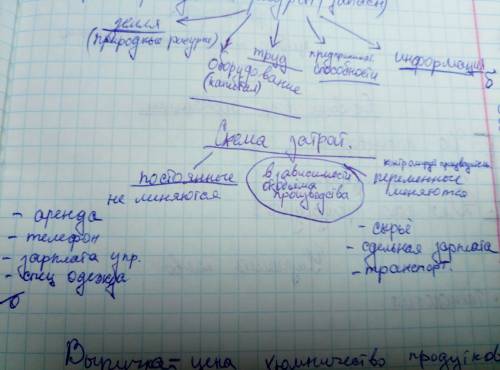 (запасы)
земля
(природные ресурсы)
Оборудование
(капитал)
труд
способности
информация
Схема затрат.
постоянные
не меняются
в зависимости
от объёма
производства
переменные
меняются
- аренда
- телефон
- зарплата упр.
- спец одежда
- сырьё
- сдельная зарплата
- транспорт.
Выручка = цена × количество продуктов